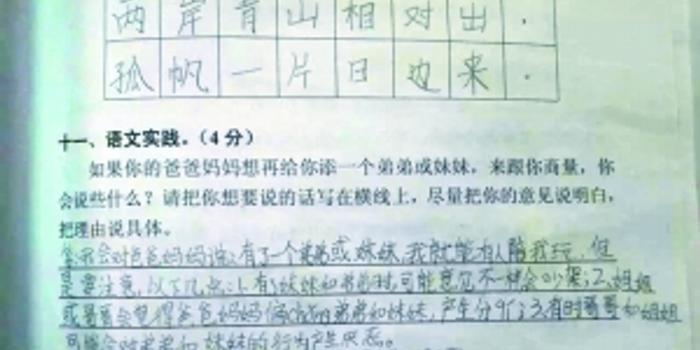 两岸青山相对出.
孤帆一片日边来.
十一、语文实践。(4分)
如果你的爸爸妈妈想再给你添一个弟弟或妹妹，来跟你商量，你
会说些什么？请把你想要说的话写在横线上，尽量把你的意见说明白，
把理由说具体。
我会对爸爸妈妈说：有了一个弟弟或妹妹，我就能有人陪我玩，但
是要注意，以下几点：1.有了妹妹和弟弟时，可能意见不一样会吵架；2.姐姐
或哥哥会觉得爸爸妈妈偏心弟弟和妹妹，产生分歧；3.有时哥哥和姐姐
可能会对弟弟和妹妹的行为产生